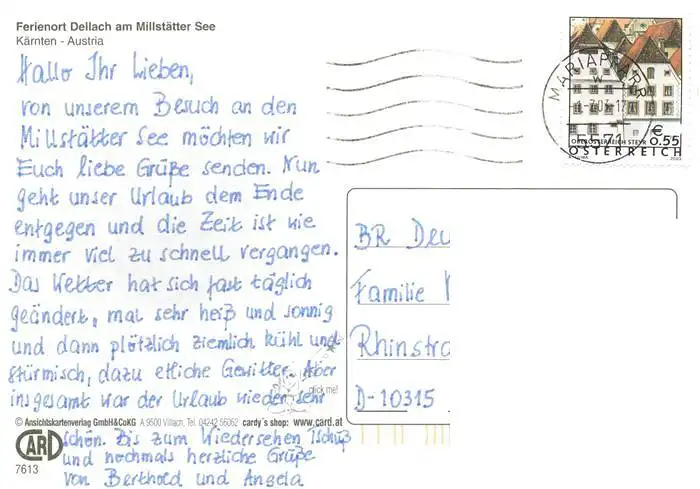 Ferienort Dellach am Millstätter See
Kärnten - Austria
Hallo Ihr Lieben,
von unserem Besuch an den
Millstätter See möchten wir
Euch liebe Grüße senden. Nun
geht unser Urlaub dem Ende
entgegen und die Zeit ist wie
immer viel zu schnell vergangen.
Das Wetter hat sich fast täglich
geändert, mal sehr heiß und sonnig
und dann plötzlich ziemlich kühl und
stürmisch, dazu etliche Gewitter. Aber
insgesamt war der Urlaub wieder sehr
schön. Bis zum Wiedersehen Tschüß
und nochmals herzliche Grüße
von Berthold und Angela
click me!
© Ansichtskartenverlag GmbH&CoKG A 9500 Villach, Tel. 04242 56062 cardy's shop: www.card.at
CARD
7613
MARIAPFARR
5571
€
0.55
OBERÖSTERREICH STEYR
ÖSTERREICH
BR Deu
Familie
Rhinstra
D-10315